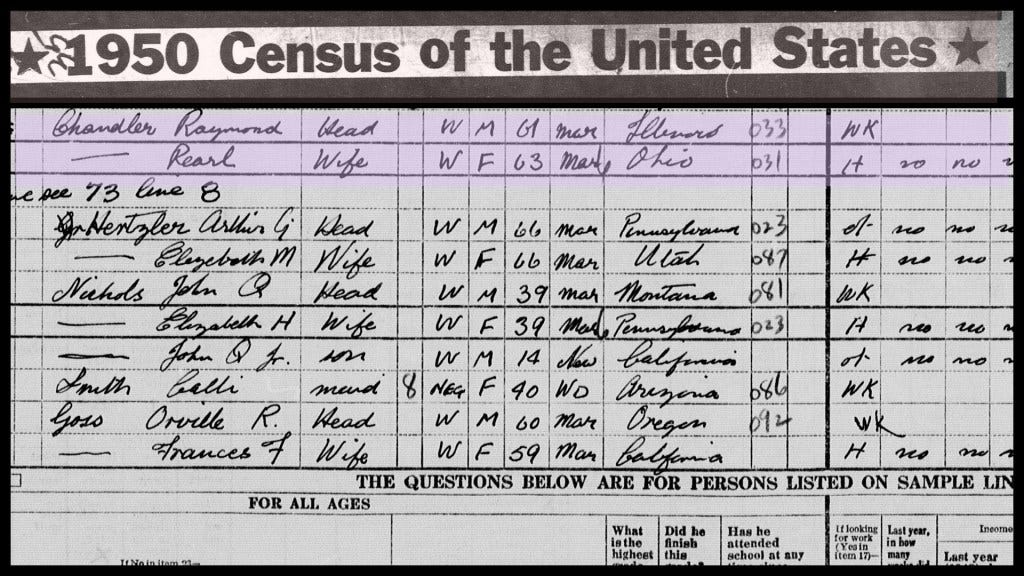 ★ 1950 Census of the United States ★
Chandler Raymond Head W M 61 Mar Illinois 033 WK
— Pearl Wife W F 63 Mar Ohio 031 H no no
see 73 line 8
Hertzler Arthur G Head W M 66 Mar Pennsylvania 023 ot no no
— Elizabeth M Wife W F 66 Mar Utah 087 H no no
Nichols John Q Head W M 39 Mar Montana 081 WK
— Elizabeth H Wife W F 39 Mar Pennsylvania 023 H no no
— John Q Jr. son W M 14 Nev California ot no no
Smith Calli maid 8 NEG F 40 WD Arizona 086 WK
Goss Orville R. Head W M 60 Mar Oregon 092 WK
— Frances F Wife W F 59 Mar California H no no
THE QUESTIONS BELOW ARE FOR PERSONS LISTED ON SAMPLE LIN
FOR ALL AGES
What is the highest
Did he finish this
Has he attended school at any
If looking for work (Yes in item 17)—
Last year, in how many
Income
Last year
If No in item 23—